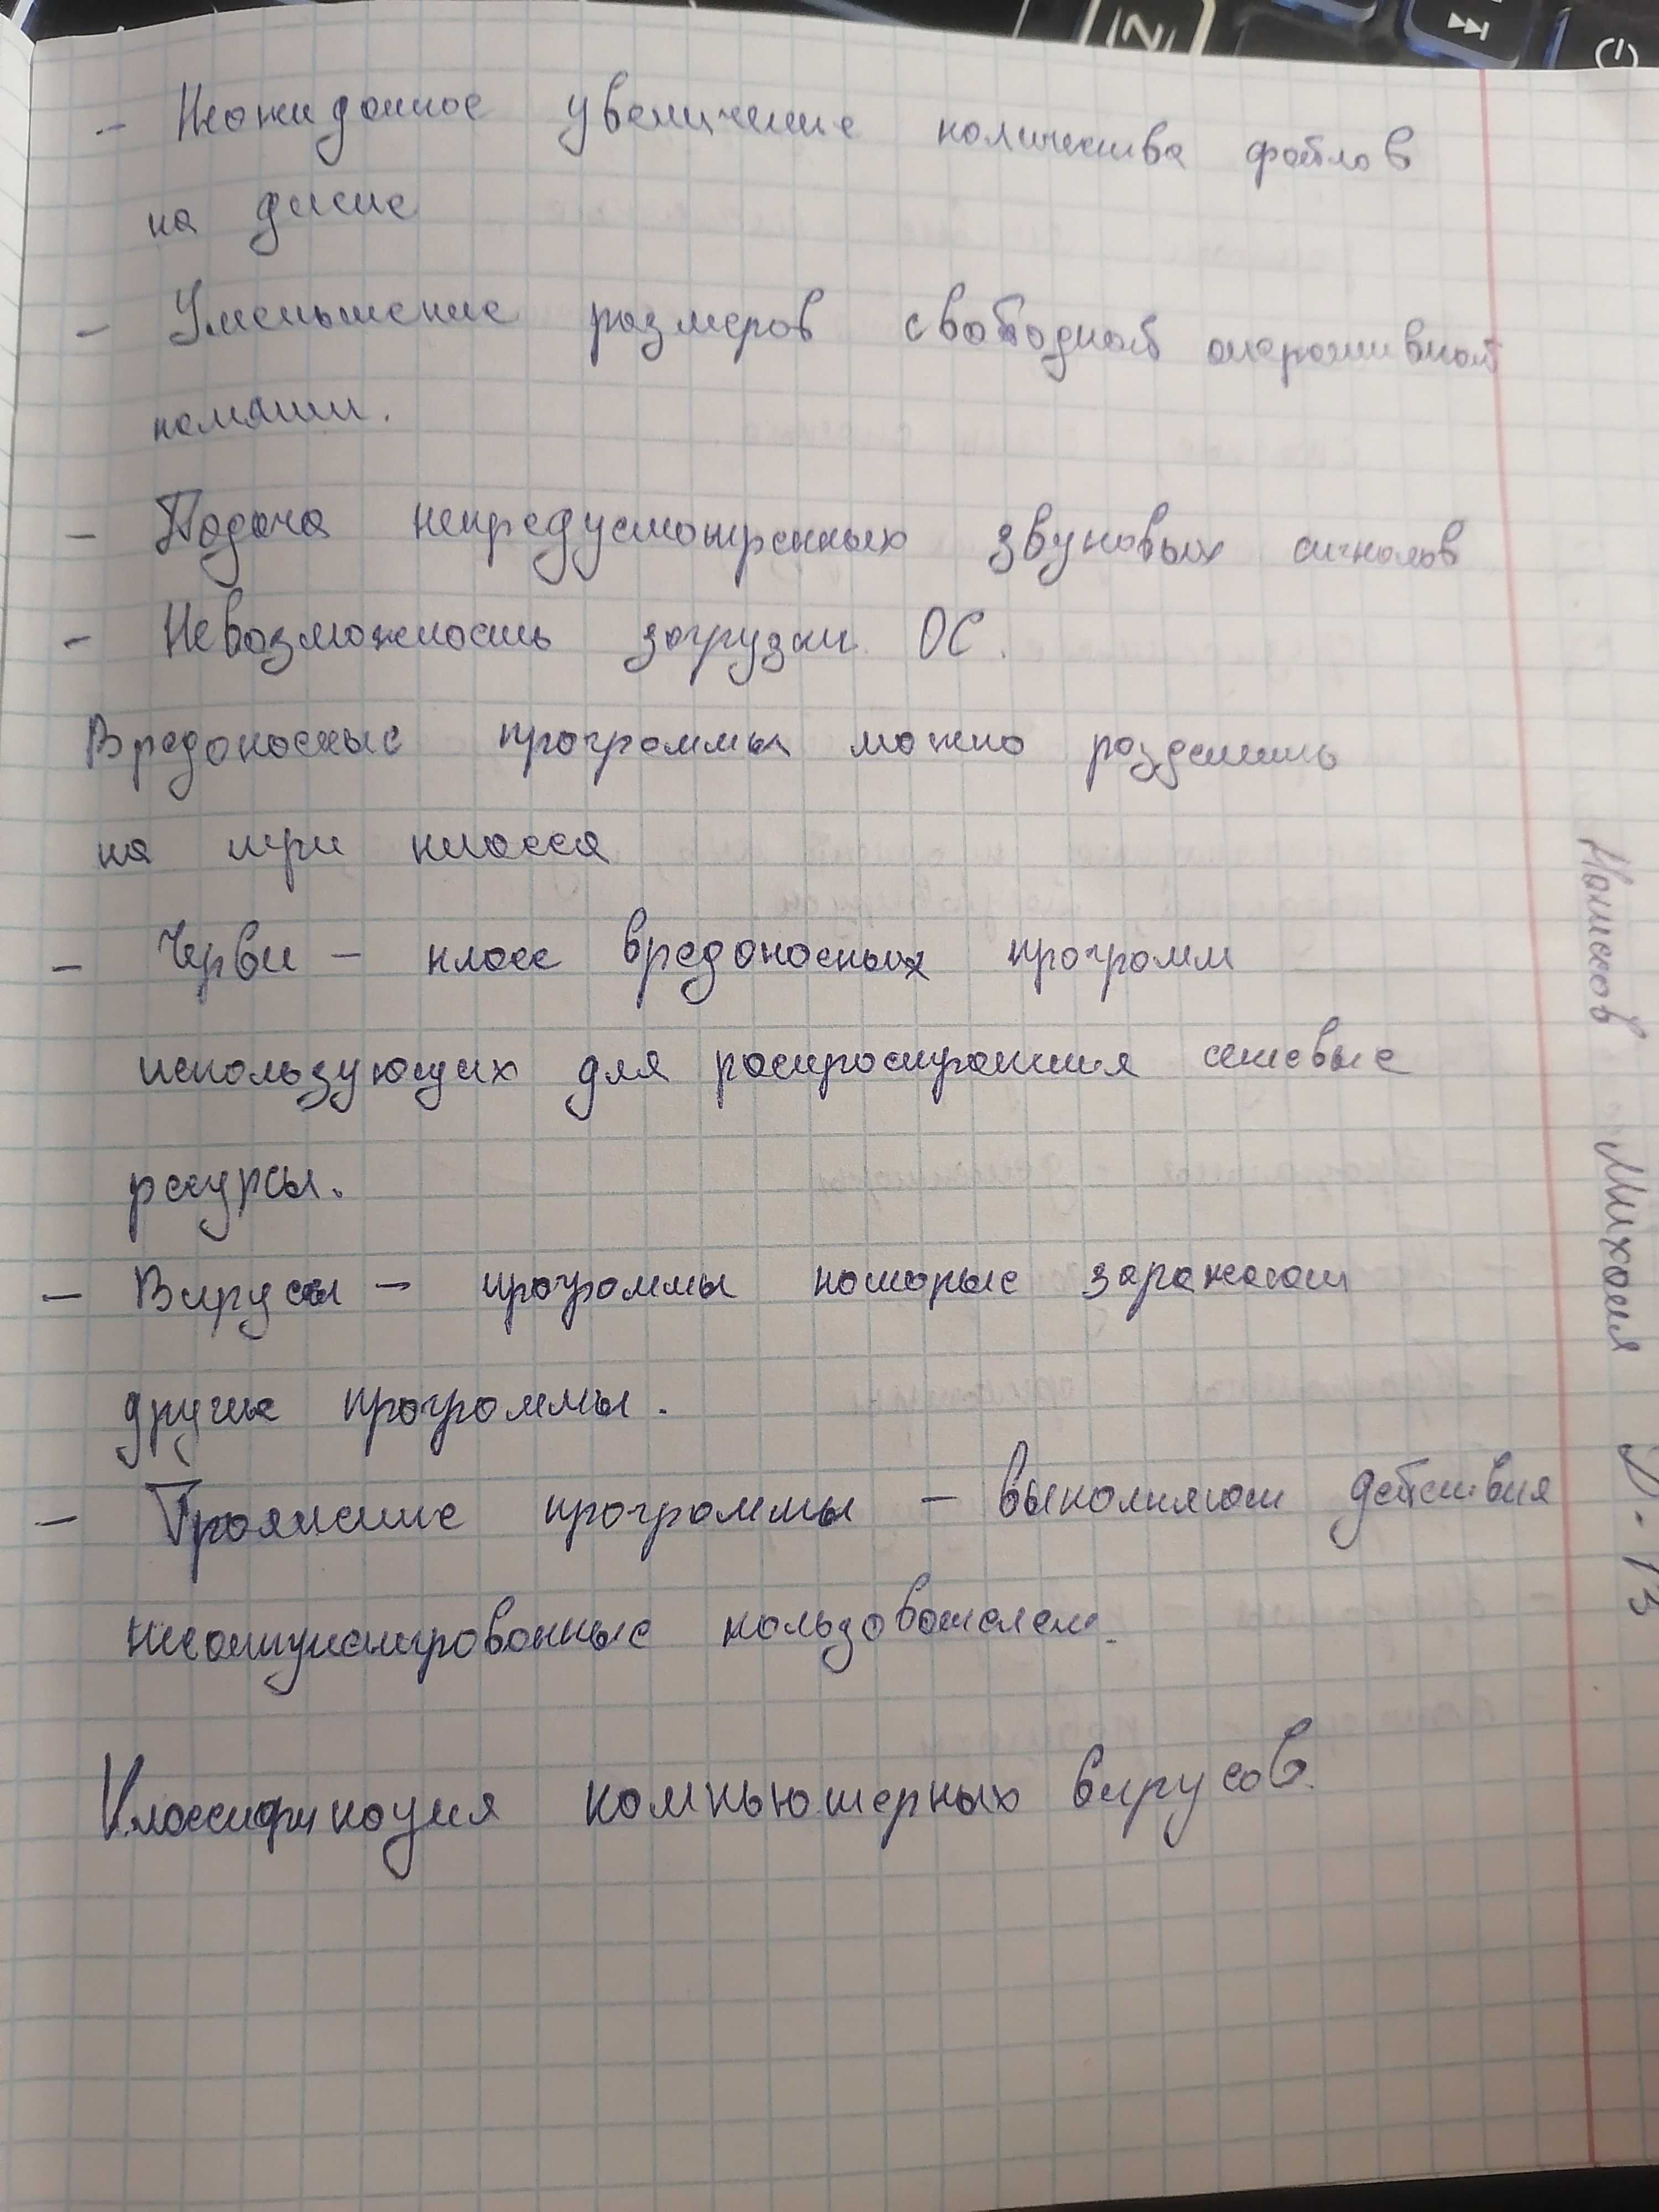 - Неожиданное увеличение количества файлов
на диске
- Уменьшение размеров свободной оперативной
памяти.
- Подача непредусмотренных звуковых сигналов
- Невозможность загрузки ОС.
Вредоносные программы можно разделить
на три класса
- Черви - класс вредоносных программ
использующих для распространия сетевые
ресурсы.
- Вирусы - программы которые заражают
другие программы.
- Троянские программы - выполняют действия
пользователем.
Классификация компьютерных вирусов.
Михаил